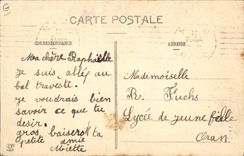 CARTE POSTALE
CORRESPONDANCE
ADRESSE
Ma chère Raphaëlle
je suis allée au
bal travesti.
je voudrais bien
savoir ce que tu
desir.
gros baisers de la
petite amie
Mademoiselle
R. Fuchs
Lycée de jeune fille
Oran